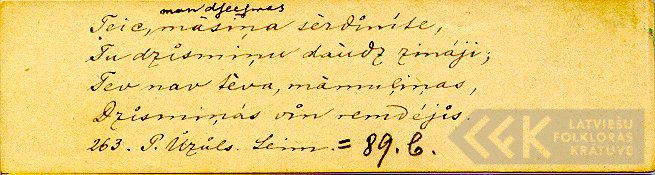 man dseesmas
Teic, māsiņa sērdinīte,
Tu dzismiņu daudz zināji;
Tev nav tēva, māmuļiņas,
Dzismiņās vin remdējis.
263. P. Ūzuls. Leim. = 89. 6.
LATVIEŠU
FOLKLORAS
KRĀTUVE